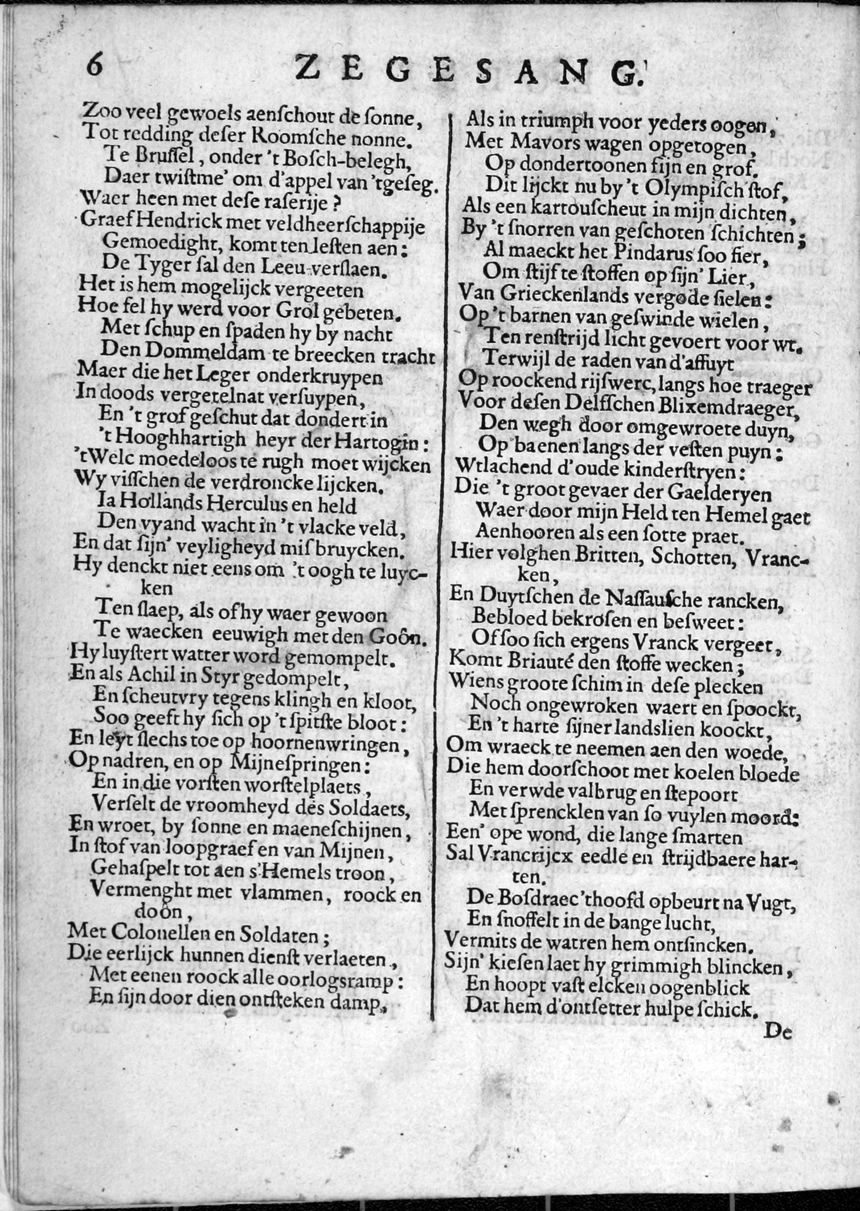 6 ZEGESANG.
Zoo veel gewoels aenſchout de ſonne,
Tot redding deſer Roomſche nonne.
Te Bruſſel, onder 't Boſch-belegh,
Daer twiſtme' om d'appel van 'tgeſeg.
Waer heen met deſe raſerije?
Graef Hendrick met veldheerſchappije
Gemoedight, komt ten leſten aen:
De Tyger ſal den Leeu verſlaen.
Het is hem mogelijck vergeeten
Hoe fel hy werd voor Grol gebeten.
Met ſchup en ſpaden hy by nacht
Den Dommeldam te breecken tracht
Maer die het Leger onderkruypen
In doods vergetelnat verſuypen,
En 't grof geſchut dat dondert in
't Hooghhartigh heyr der Hartogin:
'tWelc moedeloos te rugh moet wijcken
Wy viſſchen de verdroncke lijcken.
Ia Hollands Herculus en held
Den vyand wacht in 't vlacke veld,
En dat ſijn' veyligheyd miſbruycken.
Hy denckt niet eens om 't oogh te luyc-
ken
Ten ſlaep, als of hy waer gewoon
Te waecken eeuwigh met den Goôn.
Hy luyſtert watter word gemompelt.
En als Achil in Styr gedompelt,
En ſcheutvry tegens klingh en kloot,
Soo geeft hy ſich op 't ſpitſte bloot:
En leyt ſlechs toe op hoornenwringen,
Op nadren, en op Mijneſpringen:
En in die vorſten worſtelplaets,
Verſelt de vroomheyd des Soldaets,
En wroet, by ſonne en maeneſchijnen,
In ſtof van loopgraef en van Mijnen,
Gehaſpelt tot aen s'Hemels troon,
Vermenght met vlammen, roock en
doôn,
Met Colonellen en Soldaten;
Die eerlijck hunnen dienſt verlaeten,
Met eenen roock alle oorlogsramp:
En ſijn door dien ontſteken damp,
Als in triumph voor yeders oogen,
Met Mavors wagen opgetogen,
Op dondertoonen fijn en grof.
Dit lijckt nu by 't Olympiſch ſtof,
Als een kartouſcheut in mijn dichten,
By 't ſnorren van geſchoten ſchichten;
Al maeckt het Pindarus ſoo fier,
Om ſtijf te ſtoffen op ſijn' Lier,
Van Grieckenlands vergode ſielen:
Op 't barnen van geſwinde wielen,
Ten renſtrijd licht gevoert voor wt.
Terwijl de raden van d'affuyt
Op roockend rijſwerc, langs hoe traeger
Voor deſen Delfſchen Blixemdraeger,
Den wegh door omgewroete duyn,
Op baenen langs der veſten puyn:
Wtlachend d'oude kinderſtryen:
Die 't groot gevaer der Gaelderyen
Waer door mijn Held ten Hemel gaet
Aenhooren als een ſotte praet.
Hier volghen Britten, Schotten, Vranc-
ken,
En Duytſchen de Naſſauſche rancken,
Bebloed bekroſen en beſweet:
Of ſoo ſich ergens Vranck vergeet,
Komt Briauté den ſtoffe wecken;
Wiens groote ſchim in deſe plecken
Noch ongewroken waert en ſpoockt,
En 't harte ſijner landslien koockt,
Om wraeck te neemen aen den woede,
Die hem doorſchoot met koelen bloede
En verwde valbrug en ſtepoort
Met ſprencklen van ſo vuylen moord:
Een' ope wond, die lange ſmarten
Sal Vrancrijcx eedle en ſtrijdbaere har-
ten.
De Boſdraec 'thoofd opbeurt na Vugt,
En ſnoffelt in de bange lucht,
Vermits de watren hem ontſincken.
Sijn' kieſen laet hy grimmigh blincken,
En hoopt vaſt elcken oogenblick
Dat hem d'ontſetter hulpe ſchick.
De